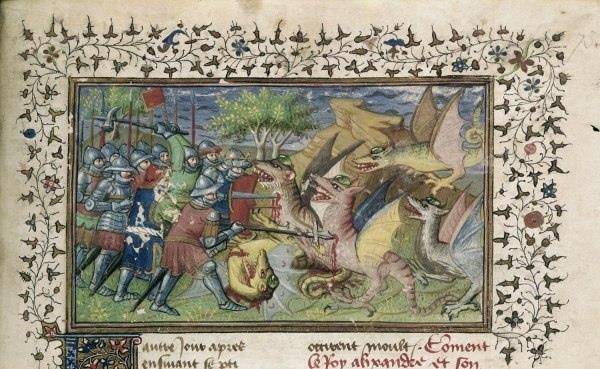 autre Jour apres
ensuiuant se pti
occirent moult. Coment
le Roy alixandre et son